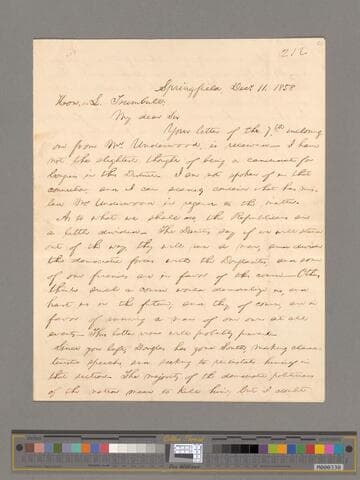 216
Springfield, Dec. 11. 1858
Hon. L. Trumbull,
My dear Sir
Your letter of the 7th inclosing
one from Mr. Underwood, is received. I have
not the slightest thought of being a candidate for
Congress in this District. I am not spoken of in that
connection; and I can scarcely conceive what has mis-
led Mr. Underwood in regard to the matter.
As to what we shall do, the Republicans are
a little divided. The Danites say if we will stand
out of the way they will run a man, and divide
the democratic forces with the Douglasites; and some
of our friends are in favor of this course. Others
think such a course would demoralize us and
hurt us in the future; and they, of course, are in
favor of running a man of our own at all
events. This latter view will probably prevail.
Since you left, Douglas has gone South, making charac-
teristic speeches, and seeking to reinstate himself in
that section. The majority of the democratic politicians
of the nation mean to kill him; but I doubt
M000330